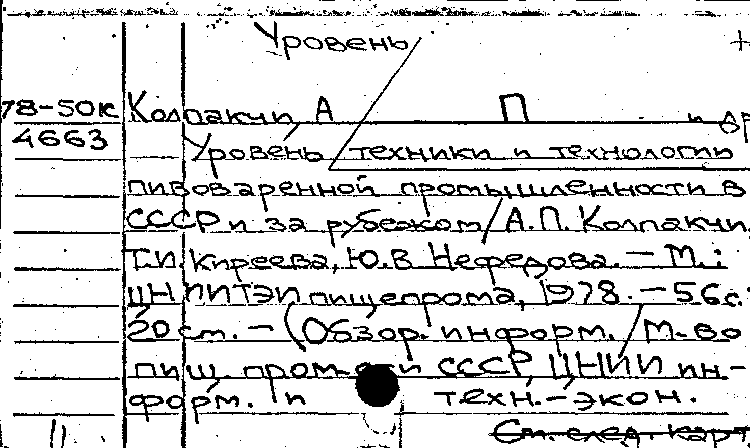 Уровень
78-50к Колпакчи, А П и др
4663 Уровень техники и технологии
пивоваренной промышленности в
СССР и за рубежом/ А.П. Колпакчи,
Т.И. Киреева, Ю.В Нефедова. – М.:
ЦНИИТЭИпищепрома, 1978. – 56с.:
20 см. – (Обзор. информ. / М-во
пищ. пром-сти СССР, ЦНИИ ин-
форм. и техн.-экон.
См. след карт